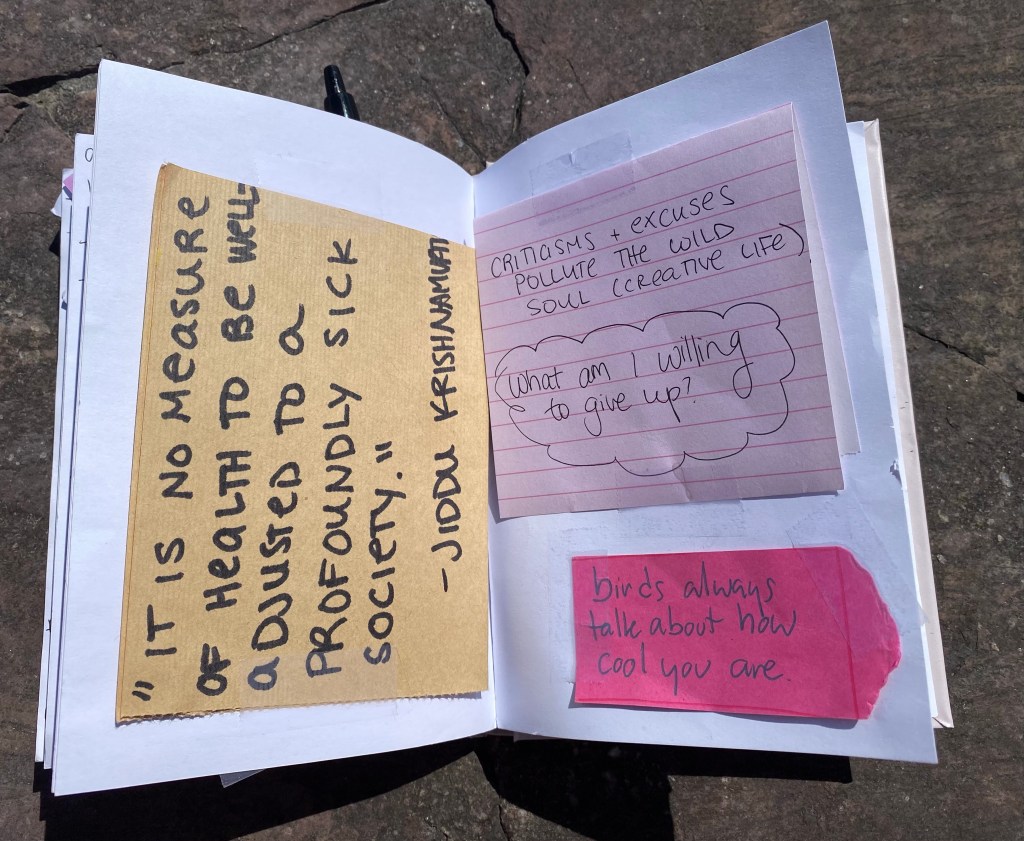 "IT IS NO MEASURE
OF HEALTH TO BE WELL-
ADJUSTED TO A
PROFOUNDLY SICK
SOCIETY."
- JIDDU KRISHNAMURTI
CRITICISMS + EXCUSES
POLLUTE THE WILD
SOUL (CREATIVE LIFE)
What am I willing
to give up?
birds always
talk about how
cool you are.